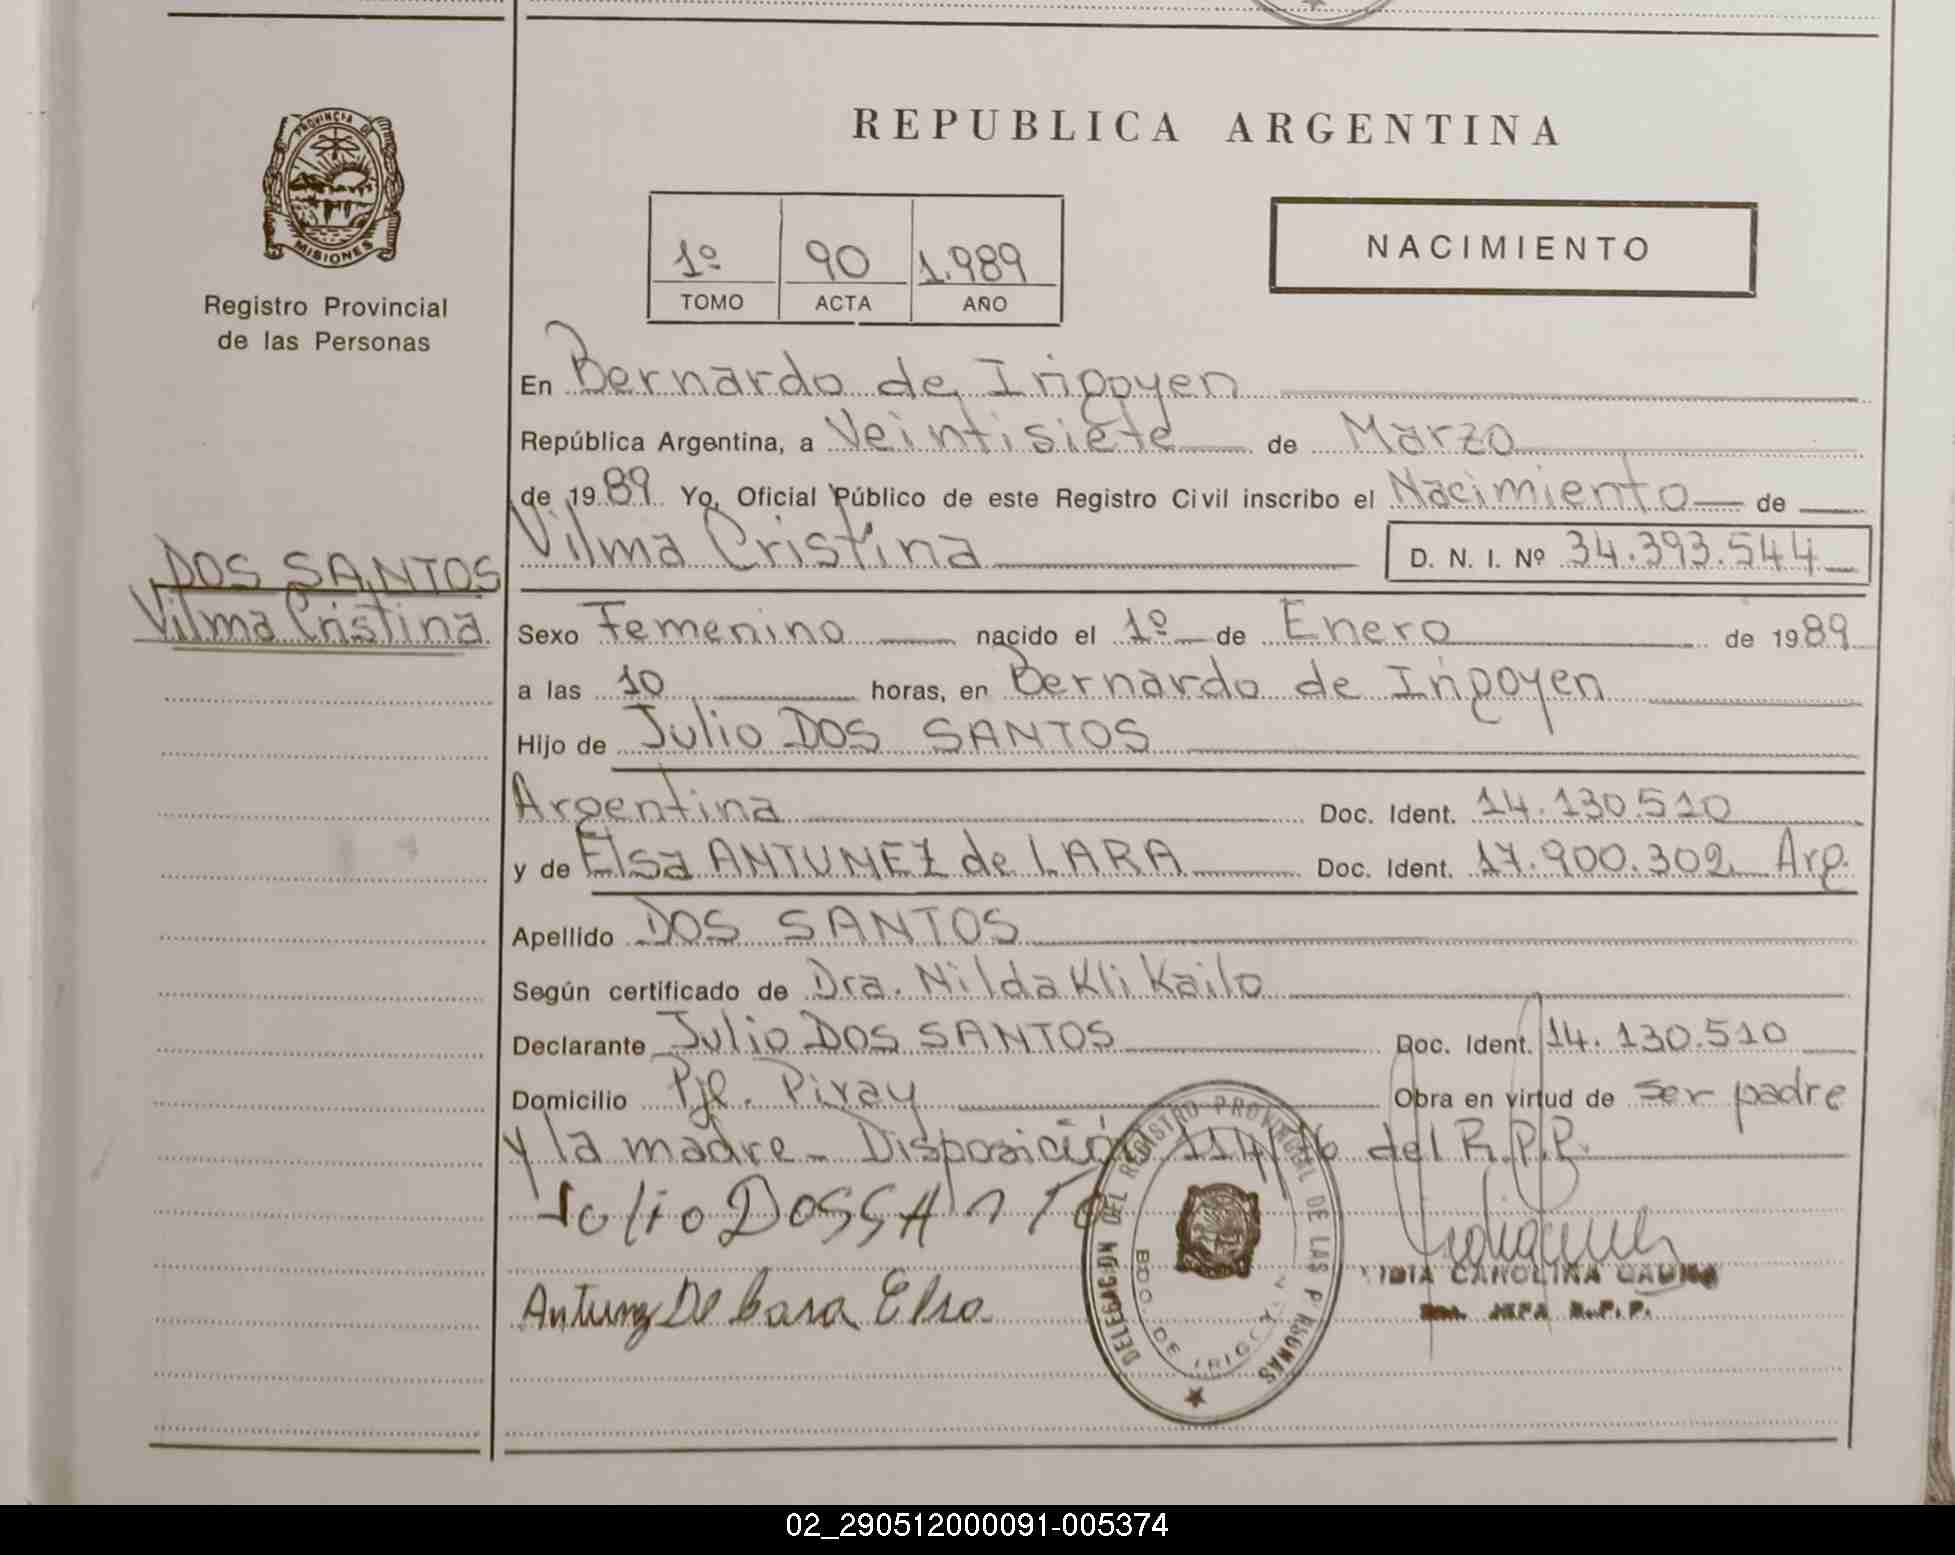 PROVINCIA DE
MISIONES
Registro Provincial
de las Personas
DOS SANTOS
Vilma Cristina
REPUBLICA ARGENTINA
1º 90 1.989
TOMO ACTA AÑO
NACIMIENTO
En Bernardo de Irigoyen
República Argentina, a Veintisiete de Marzo
de 1989 Yo, Oficial Público de este Registro Civil inscribo el Nacimiento de
Vilma Cristina D. N. I. Nº 34.393.544
Sexo Femenino nacido el 1º de Enero de 1989
a las 10 horas, en Bernardo de Irigoyen
Hijo de Julio DOS SANTOS
Argentina Doc. Ident. 14.130.510
y de Elsa ANTUNEZ de LARA Doc. Ident. 17.900.302 Arg.
Apellido DOS SANTOS
Según certificado de Dra. Nilda Kli Kailo
Declarante Julio DOS SANTOS Doc. Ident. 14.130.510
Domicilio Pje. Piray Obra en virtud de ser padre
y la madre - Disposición 114/76 del R.P.P.
Julio DOSSANTO
Antunez De Lara Elsa
DELEGACION DEL REGISTRO PROVINCIAL DE LAS PERSONAS
BDO. DE IRIGOYEN
CAROLINA
JEFA R.P.P.
02_290512000091-005374